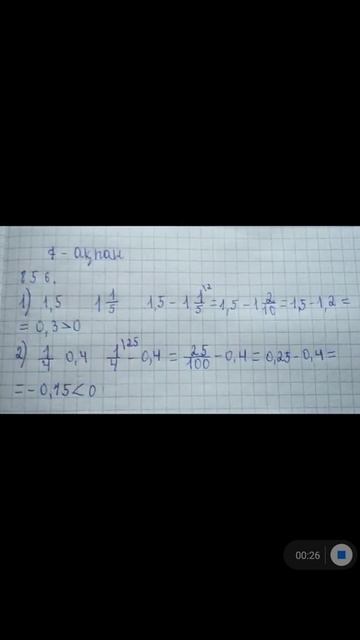 7 - ақпан
856.
1) 1,5 1 1/5 1,5 - 1 1/5 ^12 = 1,5 - 1 2/10 = 1,5 - 1,2 =
= 0,3 > 0
2) 1/4 0,4 1/4 ^125 - 0,4 = 25/100 - 0,4 = 0,25 - 0,4 =
= - 0,15 < 0
00:26